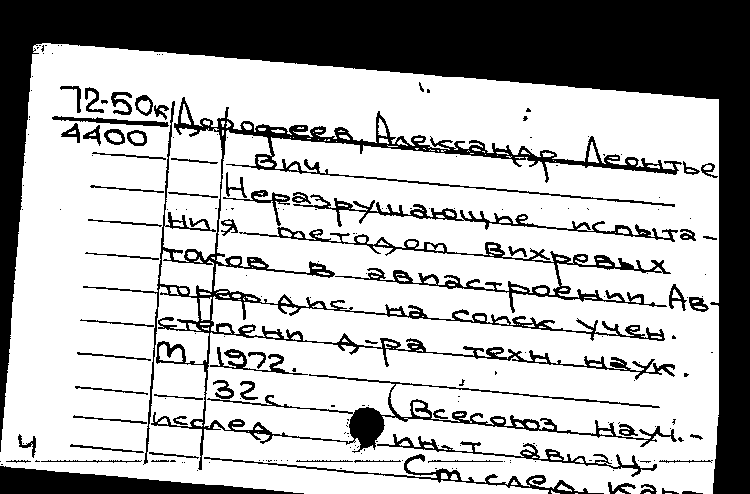 72-50к
4400
Дорофеев, Александр Леонтье
вич.
Неразрушающие испыта-
ния методом вихревых
токов в авиастроении. Ав-
тореф. дис. на соиск. учен.
степени д-ра техн. наук.
М., 1972.
32 с. (Всесоюз. науч.-
исслед. ин-т авиац.
Ст. след. кар
4